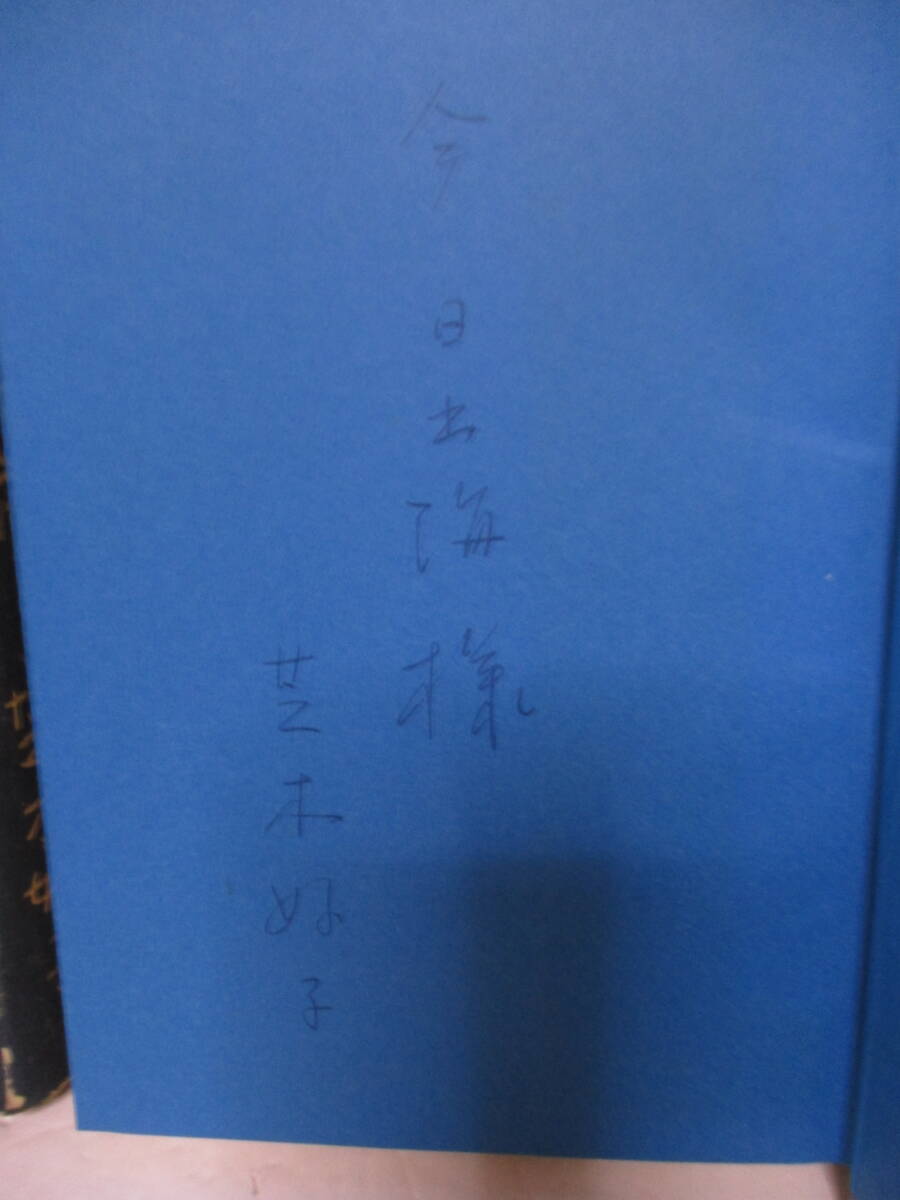 今日出海様
芝木好子